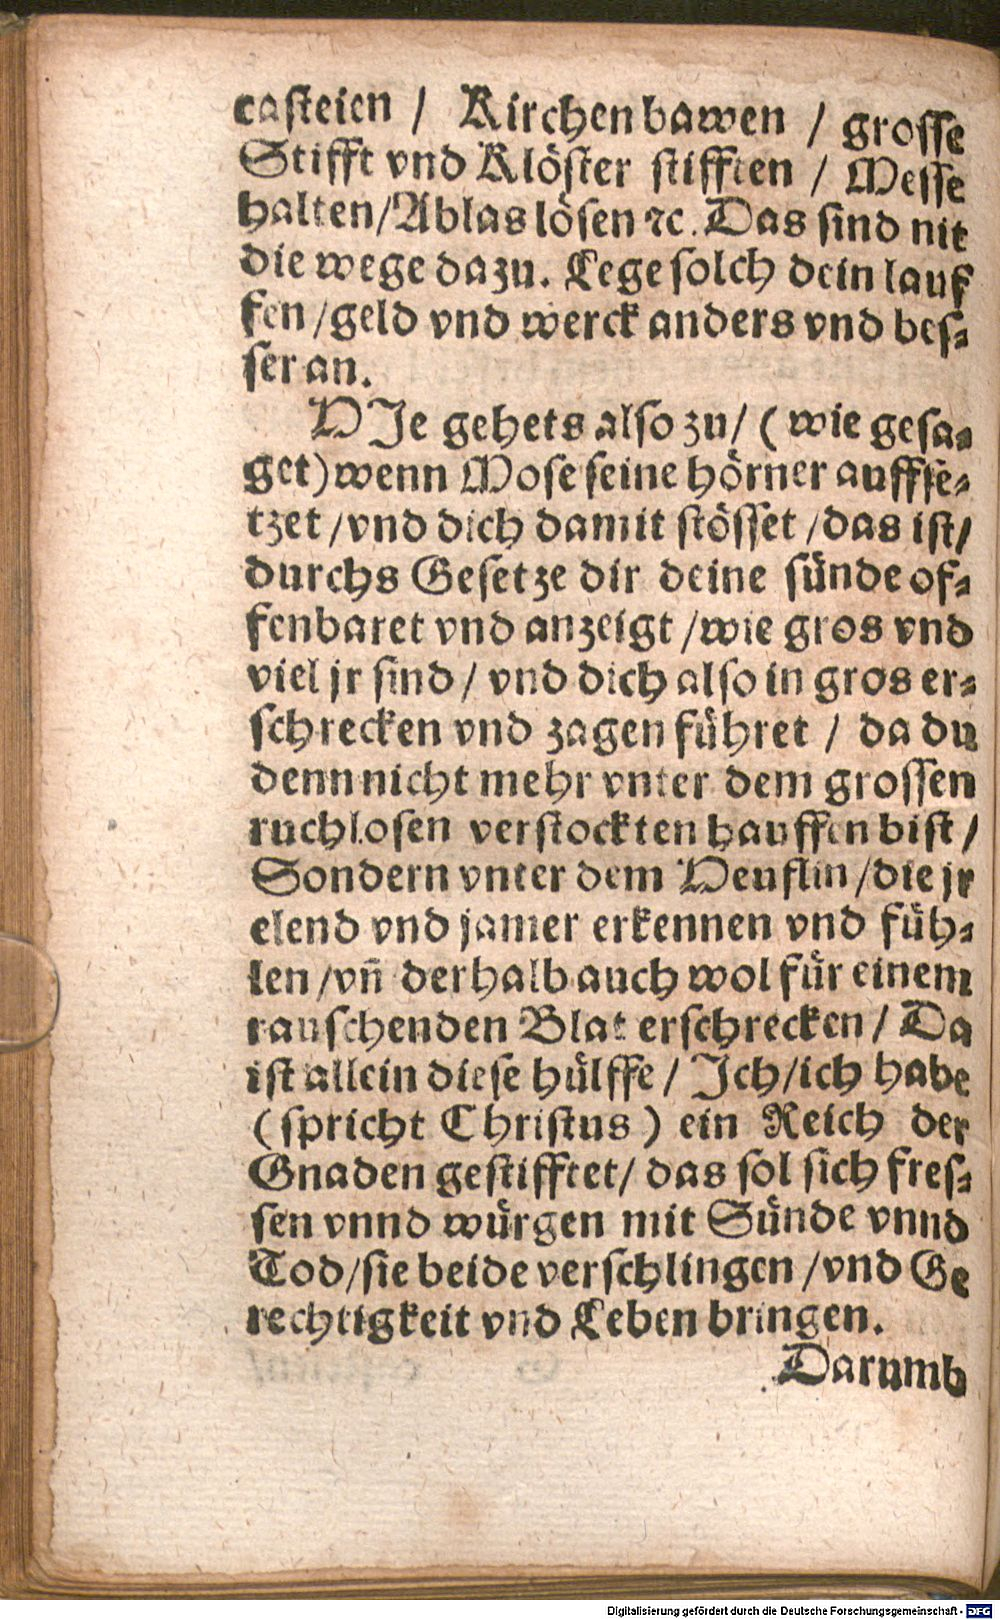 casteien / Kirchen bawen / grosse
Stifft vnd Klöster stifften / Messe
halten/Ablas lösen ꝛc. Das sind nit
die wege dazu. Lege solch dein lauf
fen /geld vnd werck anders vnd bes-
ser an.
HIe gehets also zu/ (wie gesa-
get) wenn Mose seine hörner auffse-
tzet /vnd dich damit stösset /das ist/
durchs Gesetze dir deine sünde of-
fenbaret vnd anzeigt /wie gros vnd
viel jr sind / vnd dich also in gros er-
schrecken vnd zagen führet / da du
denn nicht mehr vnter dem grossen
ruchlosen verstockten hauffen bist /
Sondern vnter dem Heuflin /die jr
elend vnd jamer erkennen vnd füh-
len /vñ derhalb auch wol für einem
rauschenden Blat erschrecken / Da
ist allein diese hülffe / Ich/ich habe
(spricht Christus) ein Reich der
Gnaden gestifftet/ das sol sich fres-
sen vnnd würgen mit Sünde vnnd
Tod/sie beide verschlingen /vnd Ge
rechtigkeit vnd Leben bringen.
Darumb
Digitalisierung gefördert durch die Deutsche Forschungsgemeinschaft - DFG